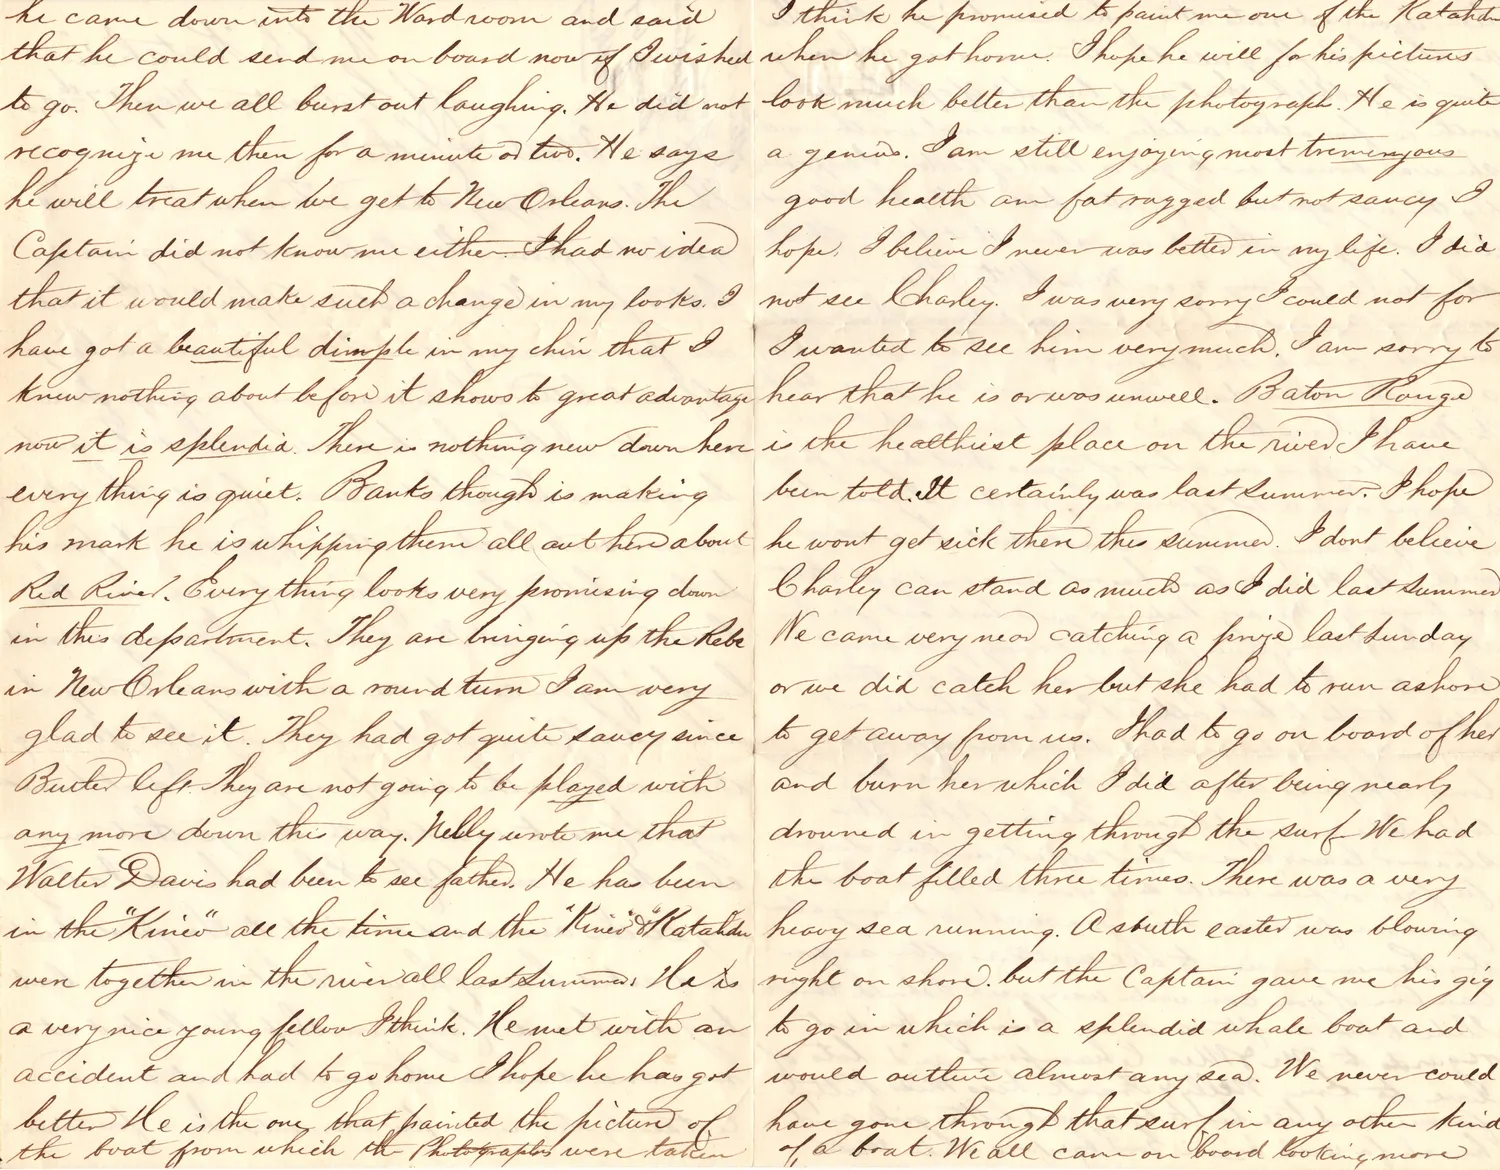 he came down into the Ward room and said
that he could send me on board now if I wished
to go. Then we all burst out laughing. He did not
recognize me then for a minute or two. He says
he will treat when we get to New Orleans. The
Captain did not know me either I had no idea
that it would make such a change in my looks. I
have got a beautiful dimple in my chin that I
knew nothing about before it shows to great advantage
now it is splendid. There is nothing new down here
every thing is quiet. Banks though is making
his mark he is whipping them all out here about
Red River. Every thing looks very promising down
in this department. They are bringing up the Rebs
in New Orleans with a round turn I am very
glad to see it. They had got quite saucy since
Butler left. They are not going to be played with
any more down this way. Nelly wrote me that
Walter Davis had been to see father. He has been
in the "Kineo" all the time and the "Kineo" & "Katahdin
were together in the river all last Summer. He is
a very nice young fellow I think. He met with an
accident and had to go home I hope he has got
better He is the one that painted the picture of
the boat from which the Photographs were taken
I think he promised to paint me one of the Katahdin
when he got home. I hope he will for his pictures
look much better than the photograph. He is quite
a genius. I am still enjoying most tremenjous
good health am fat ragged but not saucy I
hope. I believe I never was better in my life. I did
not see Charley. I was very sorry I could not for
I wanted to see him very much. I am sorry to
hear that he is or was unwell. Baton Rouge
is the healthiest place on the river I have
been told. It certainly was last Summer. I hope
he wont get sick there this summer. I dont believe
Charley can stand as much as I did last Summer
We came very near catching a prize last Sunday
or we did catch her but she had to run ashore
to get away from us. I had to go on board of her
and burn her which I did after being nearly
drowned in getting through the surf We had
the boat filled three times. There was a very
heavy sea running. A south easter was blowing
right on shore. but the Captain gave me his gig
to go in which is a splendid whale boat and
would outlive almost any sea. We never could
have gone through that surf in any other kind
of a boat. We all came on board looking more